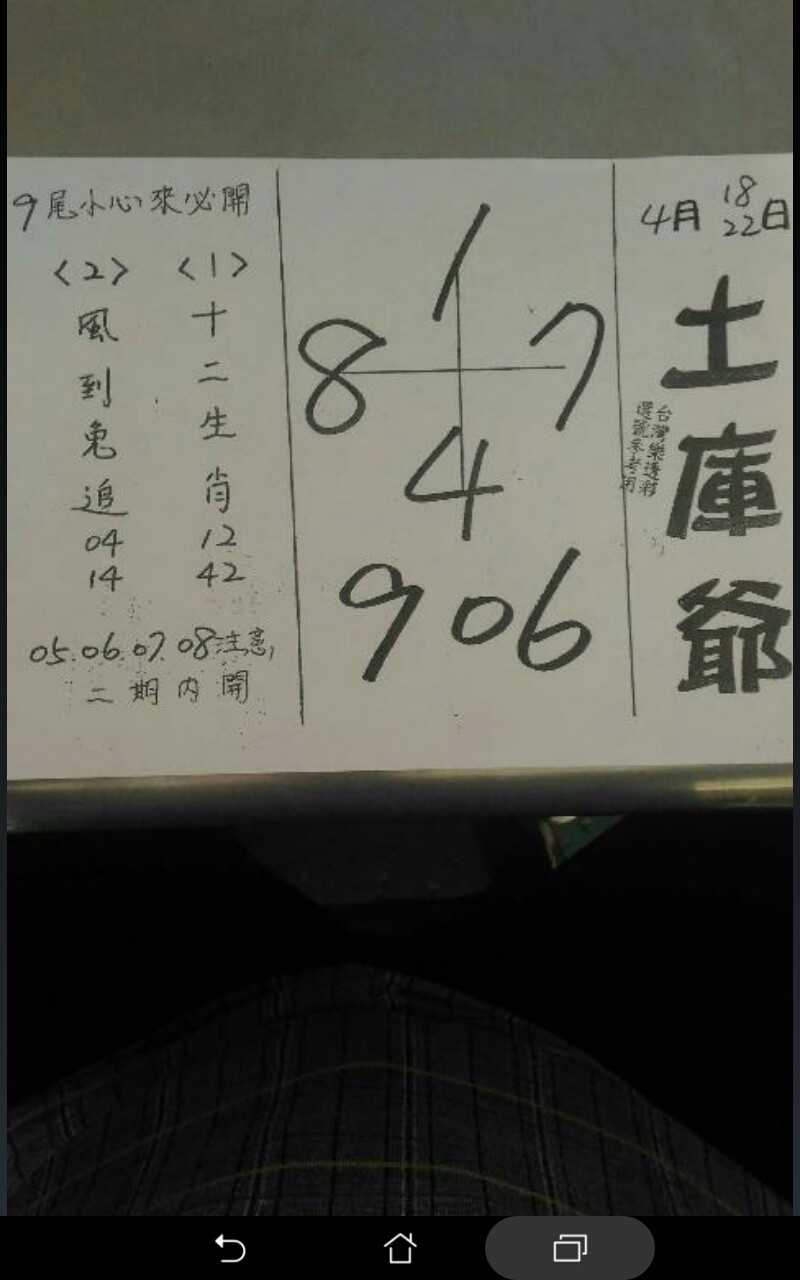 4月 18 22日
土庫爺
台灣樂透彩
選號參考用
1
8 7
4
906
9尾小心來必開
〈1〉
十二生肖
12
42
〈2〉
風到兔追
04
14
05.06.07.08注意,
二期內開